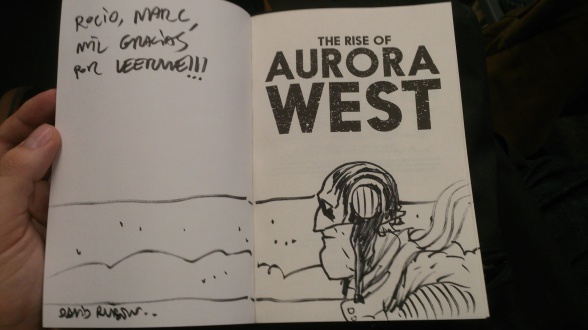 ROCIO, MARC
MIL GRACIAS
POR LEERME!!!
DAVID RUBÍN..
THE RISE OF
AURORA
WEST